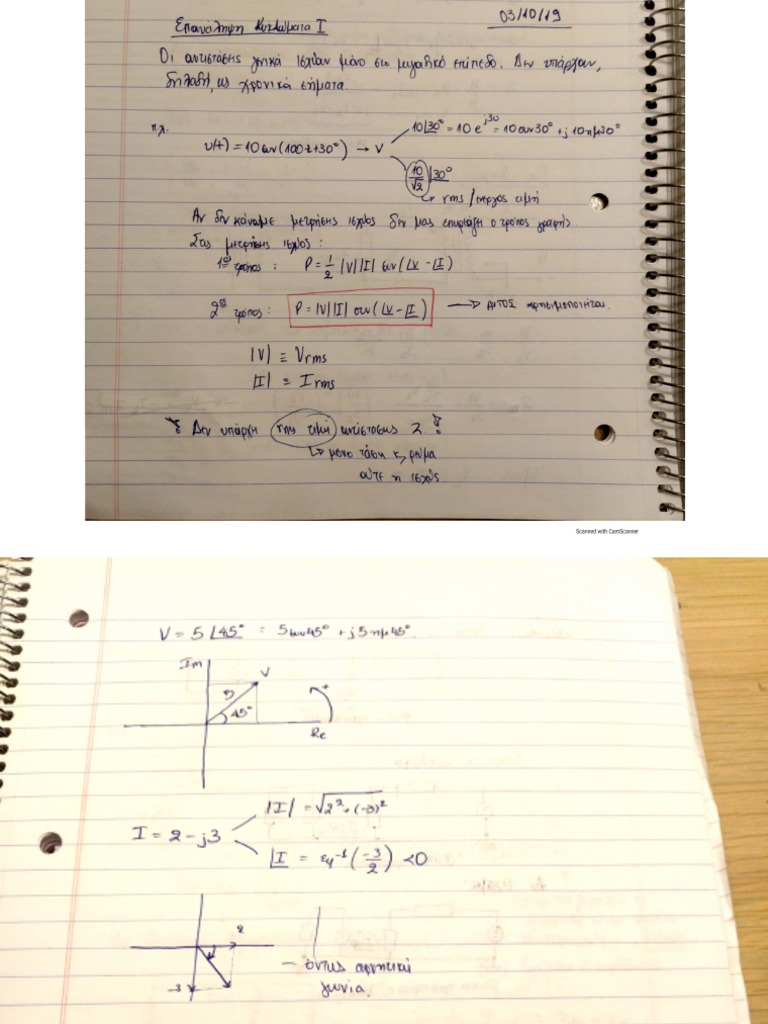 Επανάληψη Κυκλώματα I
03/10/19
Οι αντιστάσεις γενικά ισχύουν μόνο στο μιγαδικό επίπεδο. Δεν υπάρχουν,
δηλαδή, ως χρονικά σήματα.
πχ.
v(t) = 10συν(100t+30°) → V
10∠30° = 10 e^{j30} = 10συν30° + j10ημ30°
10/√2 ∠30°
↳ rms / ενεργός τιμή
Αν δεν κάνουμε μετρήσεις ισχύος δεν μας επηρεάζει ο τρόπος γραφής.
Στις μετρήσεις ισχύος:
1ος τρόπος: P = 1/2 |V||I| συν(∠V - ∠I)
2ος τρόπος: P = |V||I| συν(∠V - ∠I) → ΑΥΤΟΣ χρησιμοποιείται.
|V| ≡ Vrms
|I| ≡ Irms
! Δεν υπάρχει rms τιμή αντίστασης Z !
↳ μόνο τάση κ' ρεύμα
ούτε η ισχύς
Scanned with CamScanner
V = 5∠45° = 5συν45° + j5ημ45°
Im
V
5
45°
+
Re
|I| = √2² + (-3)²
I = 2 - j3
∠I = εφ⁻¹(-3/2) < 0
2
-3
— όντως αρνητική
γωνία.